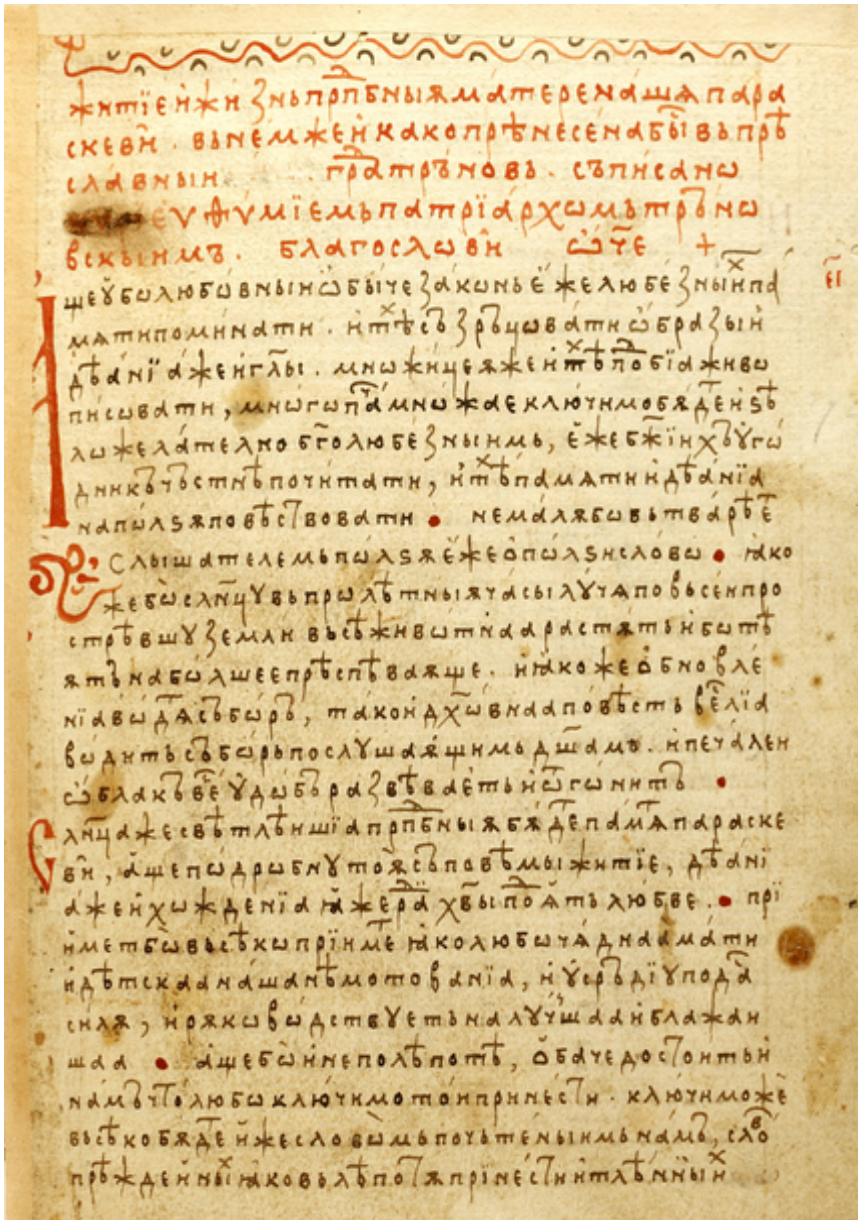 житїе и жи знь прпⷣбныѧ матере нашѧ пара
скевїи . вьнемже и како прѣнесена бы́ вь прѣ
славныи градⷣ трьновь . съписано
еѵѳѵмїемь патрїархомь трьно
вскыимъ . благослови ѡч҃е +
Ще ѹбо любовныи ѡбыче законь еже любезныиⷯ па
мѧти поминати . и тѣⷯ съ зръцовати ѡбразы и
дѣанїа же и гл҃ы . множицеѧ же и тѣⷯ подⷣобїа живо
писовати , многѡ паⷱ҇ множае ключимо бѫдеⷮ и ѕѣ
ло желателно бг҃олюбезныимь , еже бж҃їиⷯ ѹго
дникъ чъстнѣ почитати , и тѣⷯ памѧти и дѣанїа
на пользѫ повѣствовати • не малѫ бо вь тварѣ е
слышателемь пользѫ еже о ползи слово • ꙗко
же бо слн҃цѹ вь пролѣтныѧ часы лѹчѧ повьсеи про
стрѣвшѹ земли вьсѣ животнаа растѫть и бытѣ
ѫть на болшее прѣспѣваѫще . и ꙗкоже обновле
нїа водѧⷮ съборь , тако и дх҃овнаа повѣсть велїа
водить съборь послѹшаѫщимь дш҃амь . и печален
облакъ ве ѹдобь развѣваеть и ѿгонить •
Слн҃ца же свѣтлѣишїа прпⷣбныѧ бѫдеⷮ памѧⷮ параске
вїи , аще подробнѹ тоѫ съповѣмы житїе , дѣанї
а же и хожденїа ꙗже радⷣи хв҃ы подⷣѧть любве . • прї
иметь бо вьсѣко прїимеⷮ ꙗко любочѧднаа мати
и дѣтскаа наша нѣмотованїа , и ѹсръдїѹ пода
силѫ , и рѫководствѹеть на лѹчшаа и блажаи
шаа • аще бо и не полѣпотѣ , обаче достоить и
намъ что любо ключимо тои принести . ключимо же
вьсѣко бѫдеⷮ иже словомь почьтеныимь намъ , слово
прѣжде иныⷯ ꙗко вьлѣпотѫ прїнести и тлѣнныиⷯ